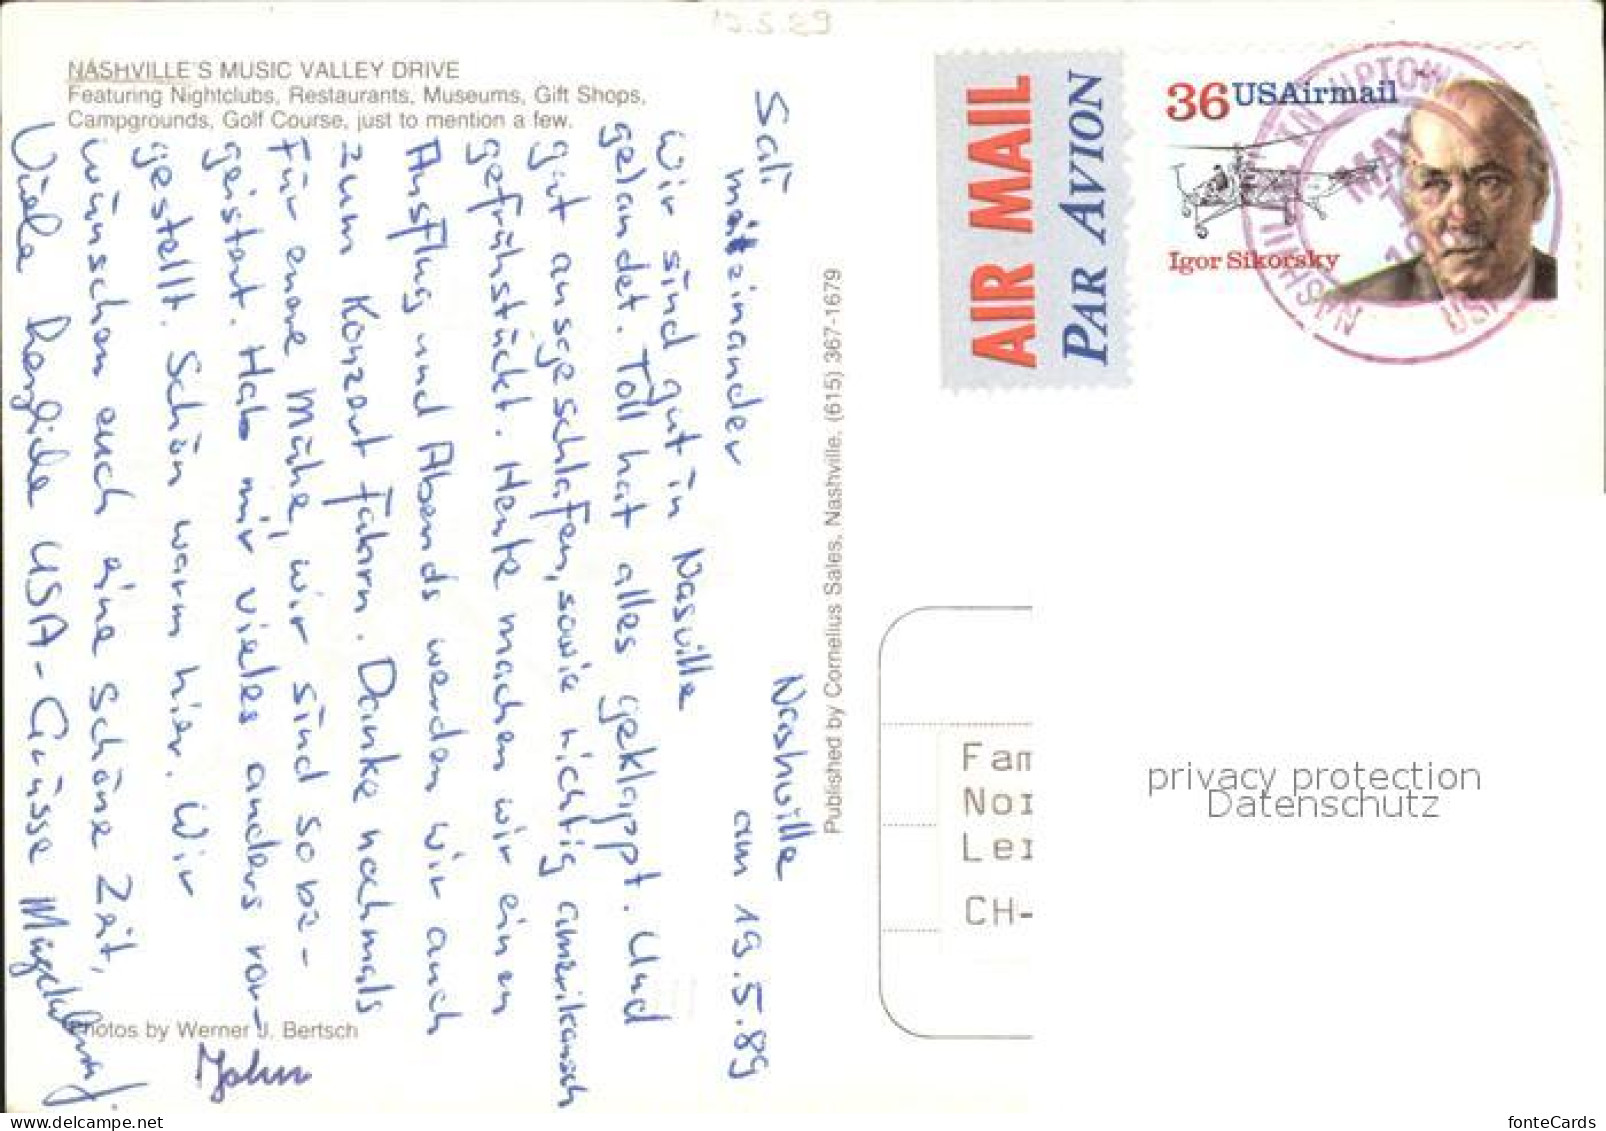 NASHVILLE'S MUSIC VALLEY DRIVE
Featuring Nightclubs, Restaurants, Museums, Gift Shops,
Campgrounds, Golf Course, just to mention a few.
Nashville
am 19.5.89
Sali
mitzinander
Wir sind gut in Nasville
gelandet. Toll hat alles geklappt. Und
gut ausgeschlafen, sowie richtig amerikanisch
gefrühstückt. Heute machen wir einen
Ausflug und Abends werden wir auch
zum Konzert fahrn. Danke nochmals
für euere Mühe, wir sind so be-
geistert. Hab mir vieles anders vor-
gestellt. Schön warm hier. Wir
wünschen euch eine schöne Zeit,
Viele herzliche USA-Grüsse
John
Photos by Werner J. Bertsch
Published by Cornelius Sales, Nashville, (615) 367-1679
AIR MAIL
PAR AVION
36 USAirmail
Igor Sikorsky
MAY
Fam
Nor
Lei
CH-
privacy protection
Datenschutz
fonteCards